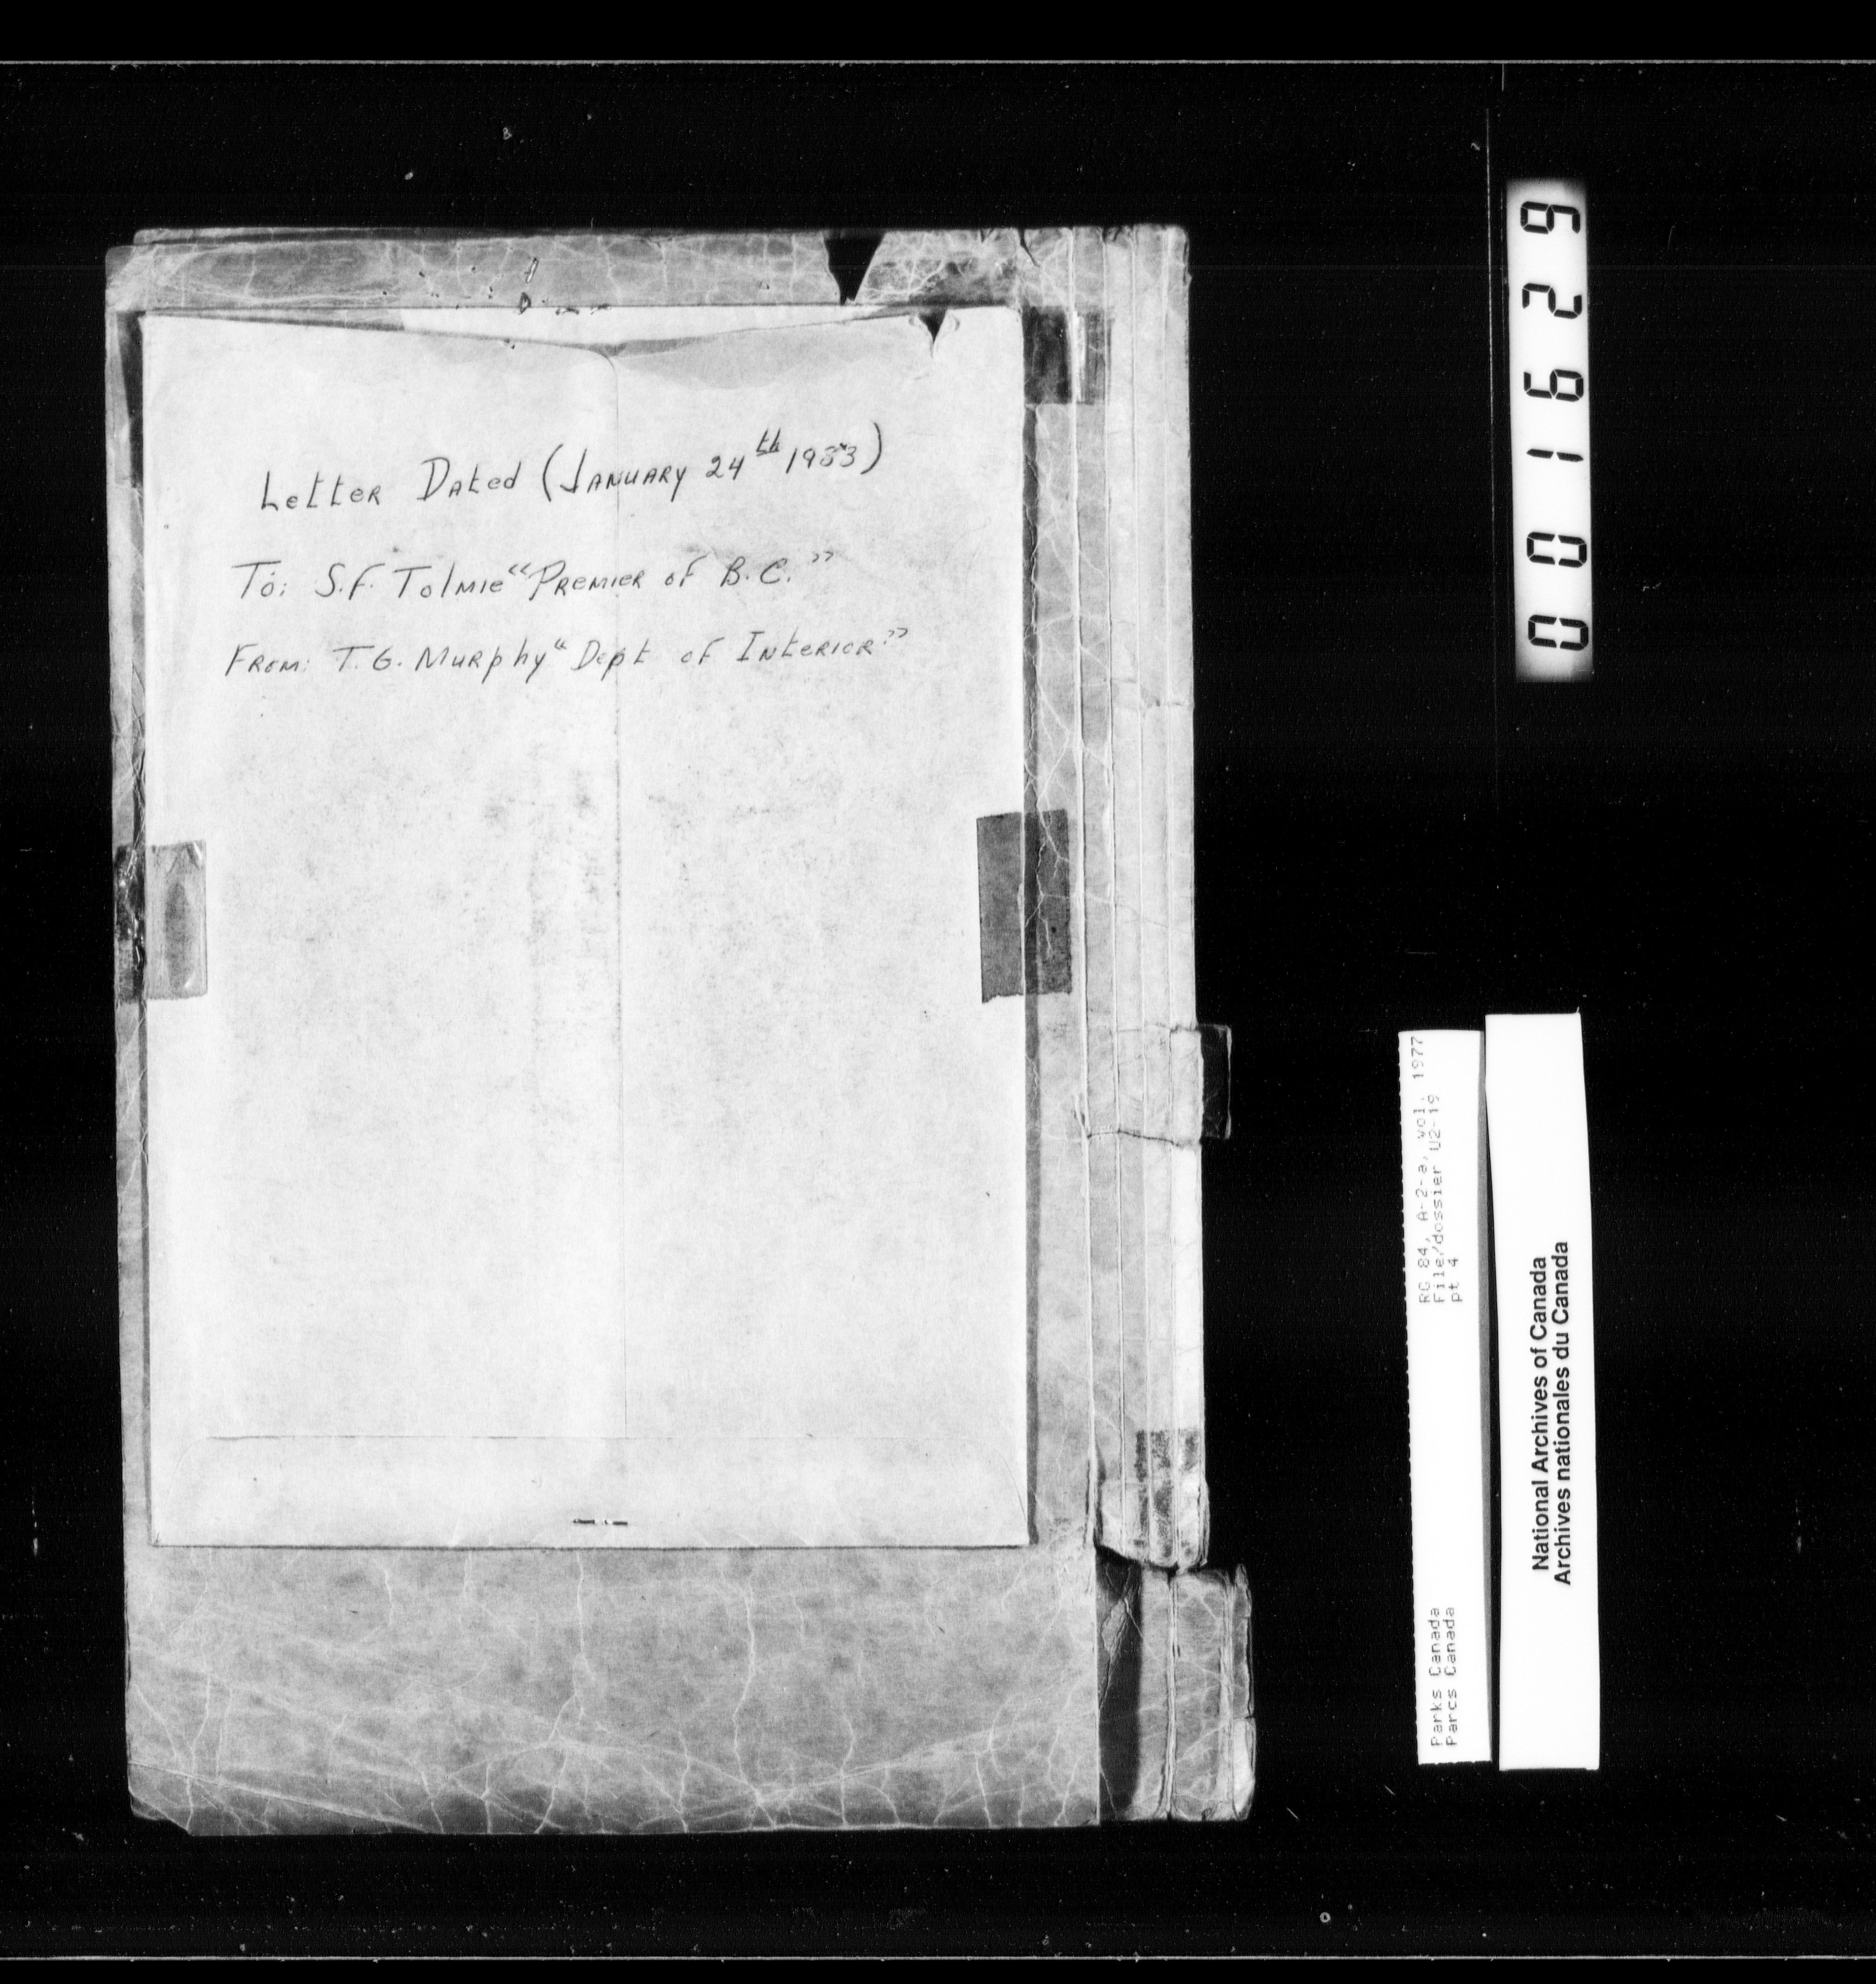 Letter Dated (January 24th 1933)
To: S.F. Tolmie "Premier of B.C."
From: T.G. Murphy "Dept of Interior"
001629
RG 84, A-2-a, vol. 1977
File/dossier U2-19
pt 4
Parks Canada
Parcs Canada
National Archives of Canada
Archives nationales du Canada